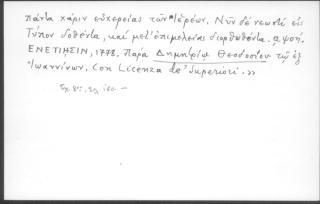 πάντα χάριν εὐχερείας τῶν Ἱερέων. Νῦν δὲ νεωστὶ εἰς
Τύπον δοθέντα, καὶ μετ' ἐπιμελείας διορθωθέντα. αψοή.
ΕΝΕΤΙΗΣΙΝ, 1778. Παρὰ Δημητρίῳ Θεοδοσίου τῷ ἐξ
Ἰωαννίνων. Con Licenza de' Superiori. »